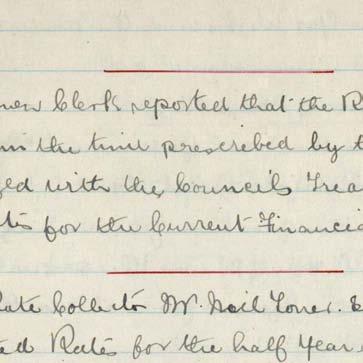 Clerk reported that the R
in the time prescribed by t
with the Council's Trea
for the Current Financia
Rate Collector Mr. Neil
ted Rates for the half year